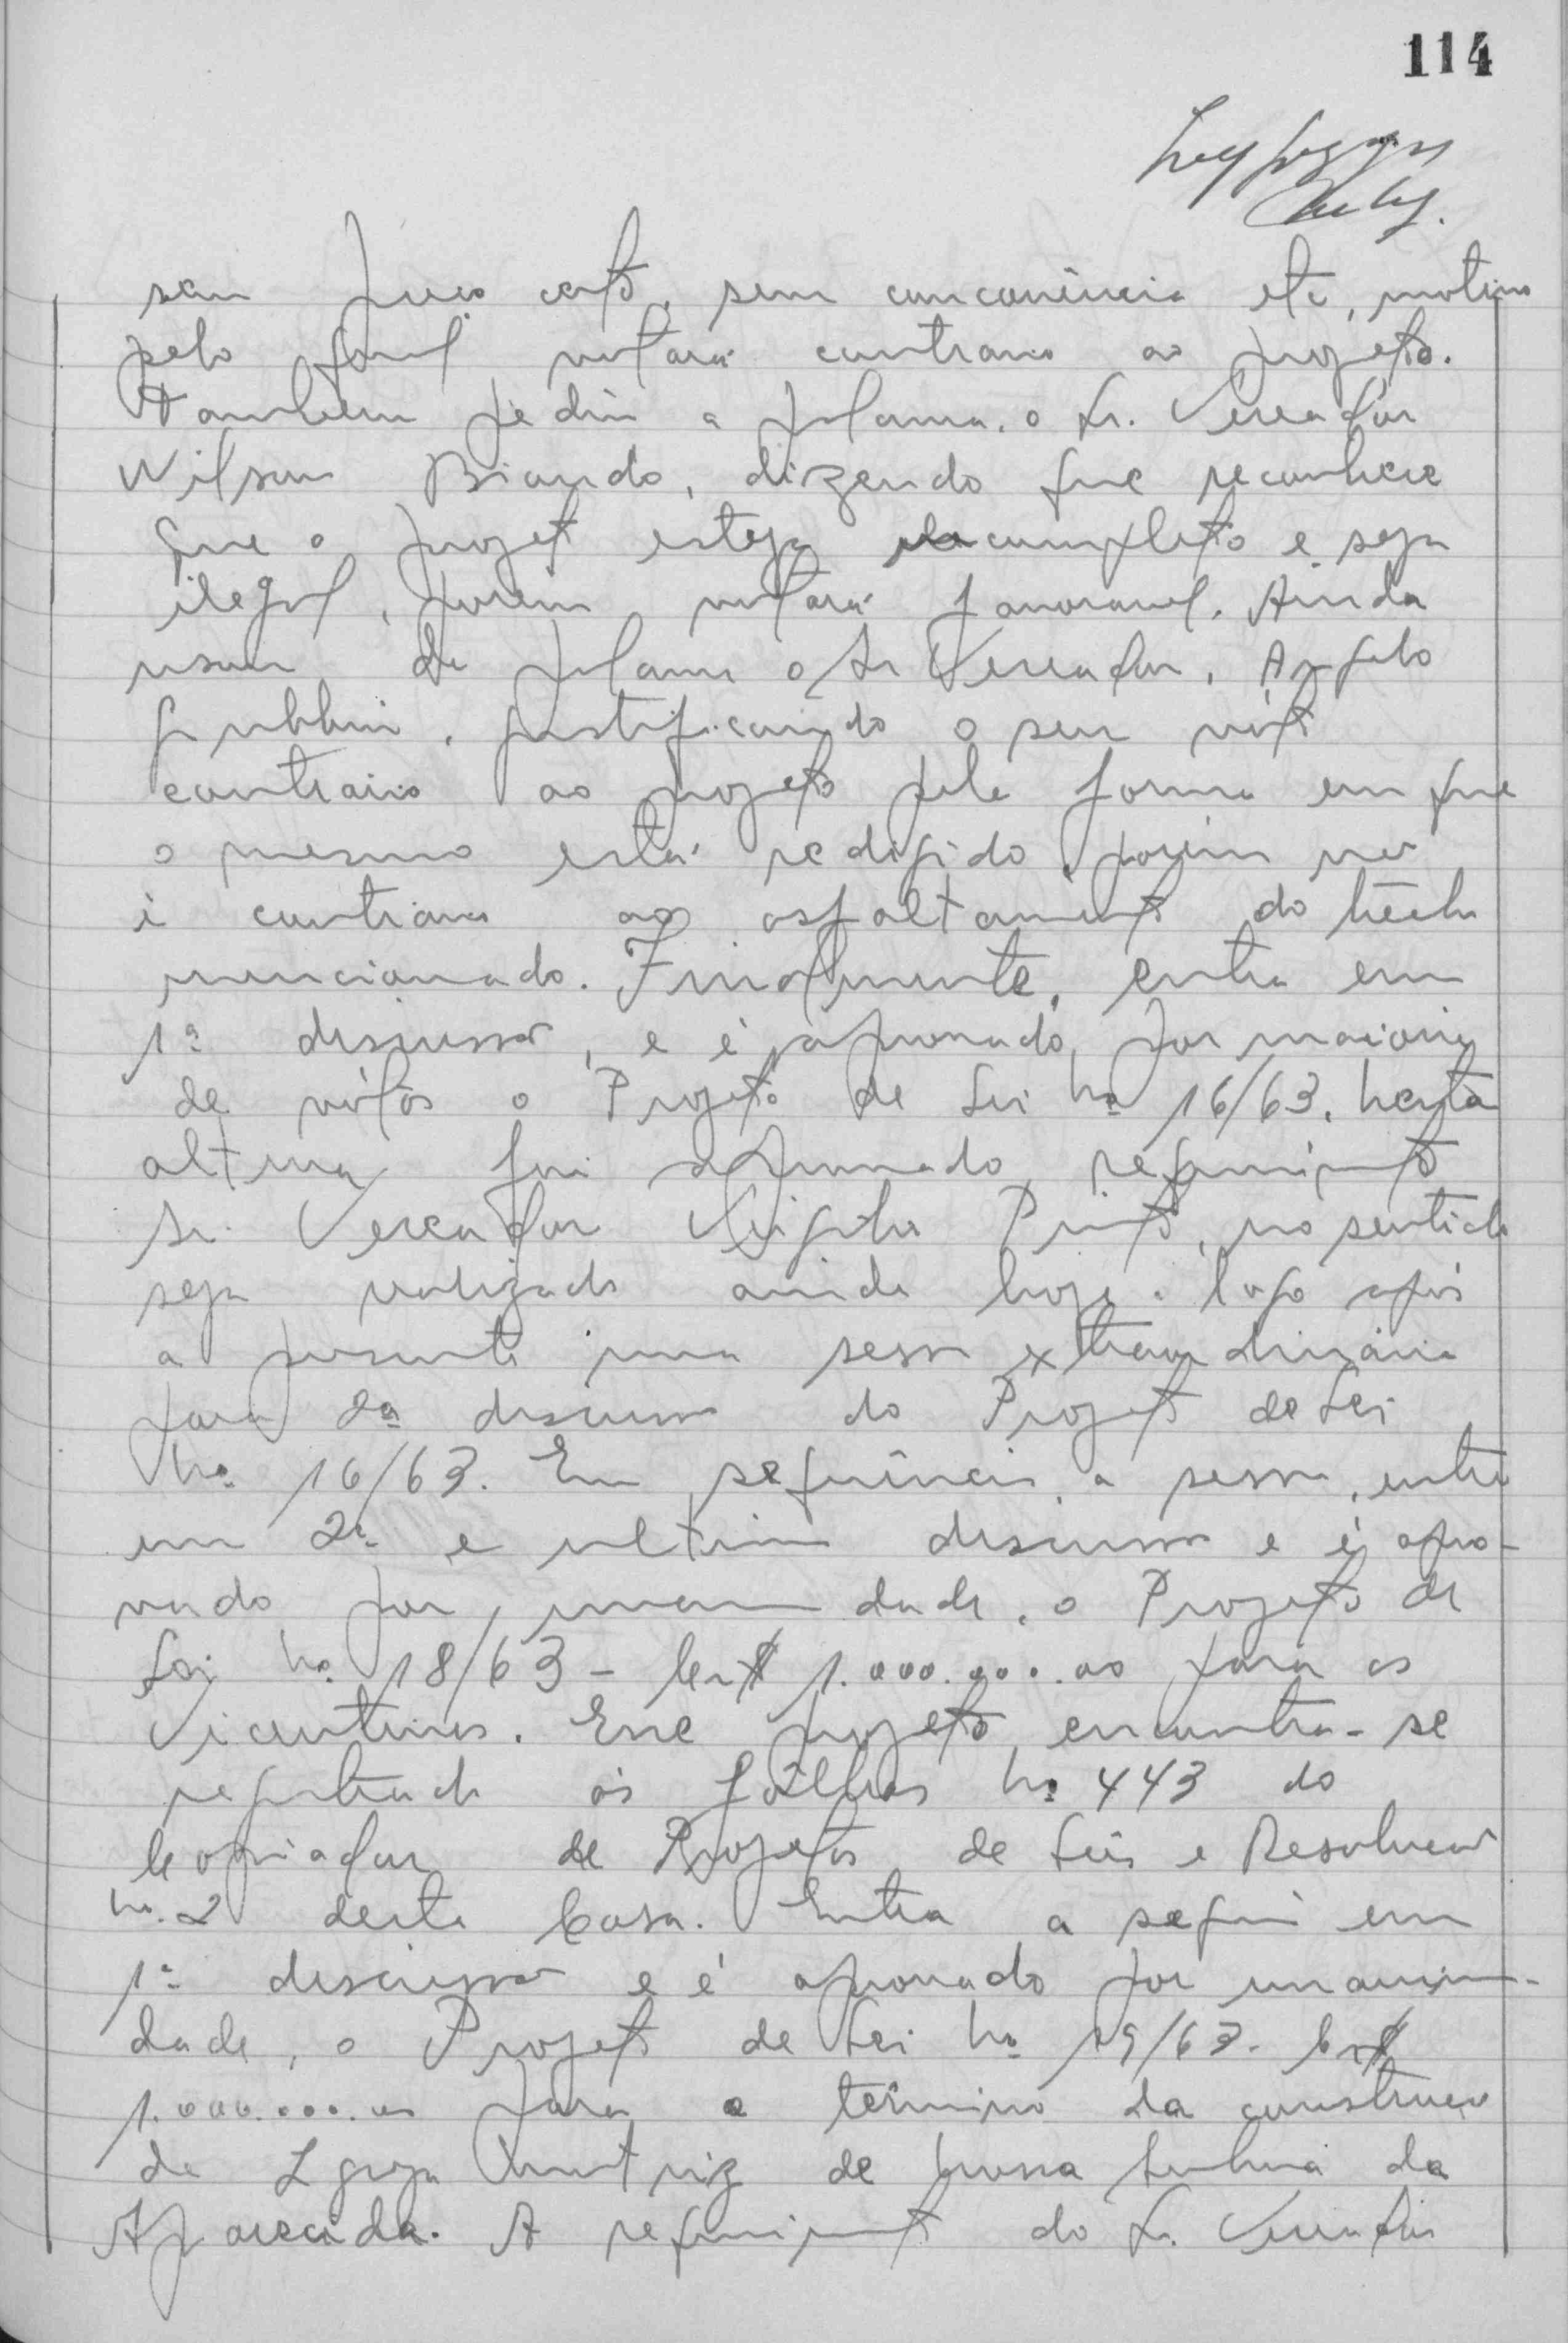 114
sem preço certo, sem concorrência etc, motivo
pelo qual votará contrario ao projeto.
Tambem pediu a palavra, o Sr. Vereador
Wilson Biondo, dizendo que reconhece
que o projeto esteja incompleto e seja
ilegal, porém votará favoravel. Ainda
usou da palavra o Sr Vereador, Angelo
Gubbini, justificando o seu vóto
contrario ao projeto pela forma em que
o mesmo está redigido, porém não
é contrario ao asfaltamento do trêcho
mencionado. Finalmente, entra em
1ª discussão, e é aprovado, por maioria
de vótos o Projeto de Lei nº 16/63. Nesta
altura foi aprovado requerimento
Sr. Vereador Virgilio Pinto, no sentido
seja realizada ainda hoje, logo após
a presente uma sessão extraordinária
para 2ª discussão do Projeto de Lei
nº 16/63. Em sequência, a sessão, entra
em 2ª e ultima discussão e é apro-
vado por unanimidade, o Projeto de
Lei nº 18/63 - Cr$ 1.000.000.00 para os
Vicentinos. Esse projeto encontra-se
registrado ás fôlhas nº 443 do
Copiador de Projetos de Leis e Resolução
nº 2 desta Casa. Entra a seguir em
1ª discussão e é aprovado por unanimi-
dade, o Projeto de Lei nº 19/63. Cr$
1.000.000.00 para o término da construção
da Igreja Matriz de Nossa Senhora da
Aparecida. A requerimento do Sr. Vereador